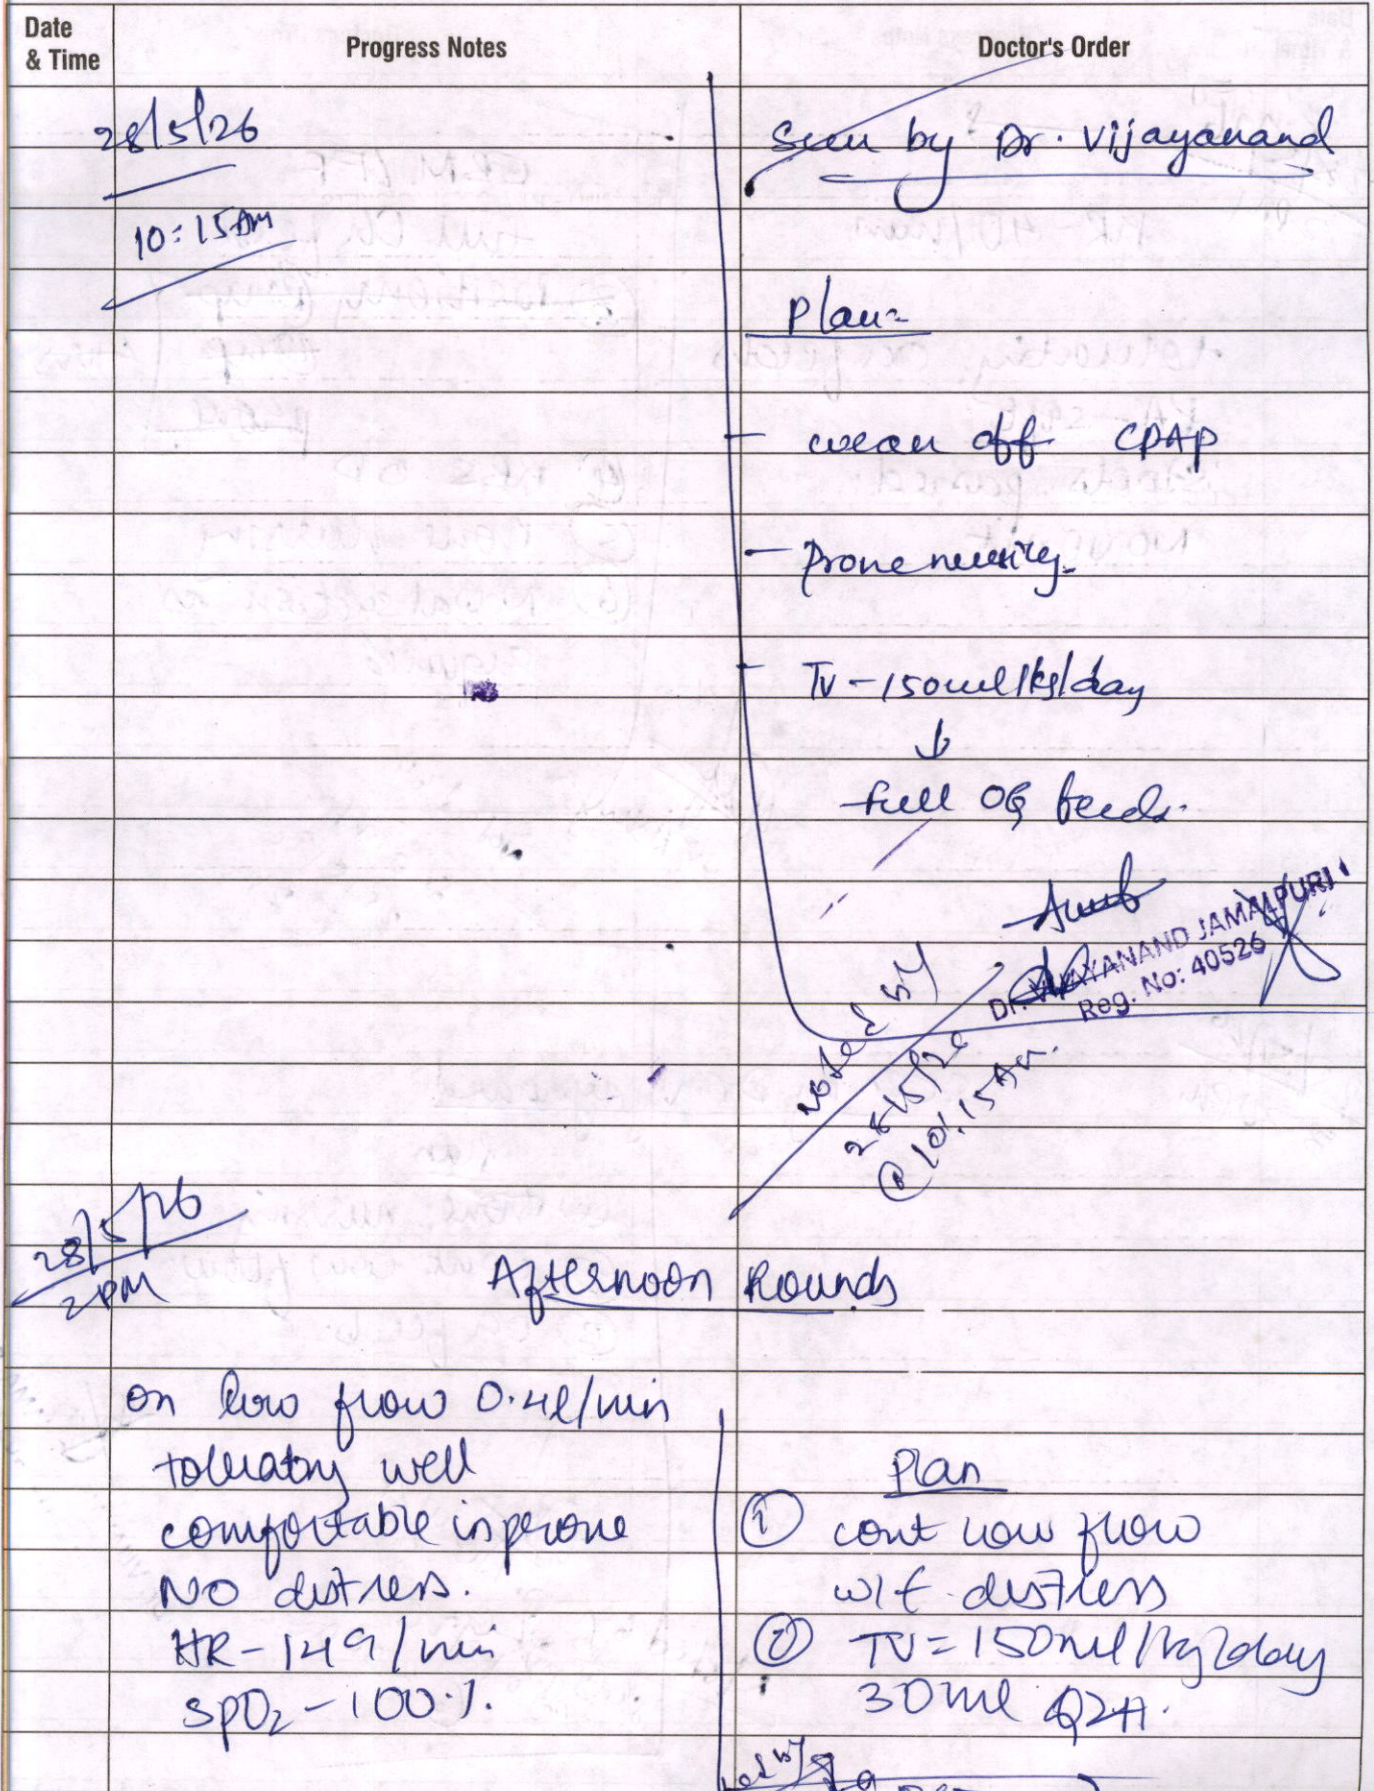 Date
& Time
Progress Notes
Doctor's Order
28/5/26
10:15Am
Seen by Dr. Vijayanand
Plan:-
- wean off CPAP
- Prone nursing.
- TV - 150ml/kg/day
↓
full OG feeds.
DR. VIJAYANAND JAMALPURI
Reg. No: 40526
Noted by
28/5/26
@ 10:15 Am.
28/5/26
2 PM
Afternoon Rounds
on low flow 0.4l/min
tolerating well
comfortable in prone
NO distress.
HR - 149/min
SpO2 - 100%.
Plan
① cont low flow
w/f. distress
② TV = 150ml/kg/day
30ml Q2H.